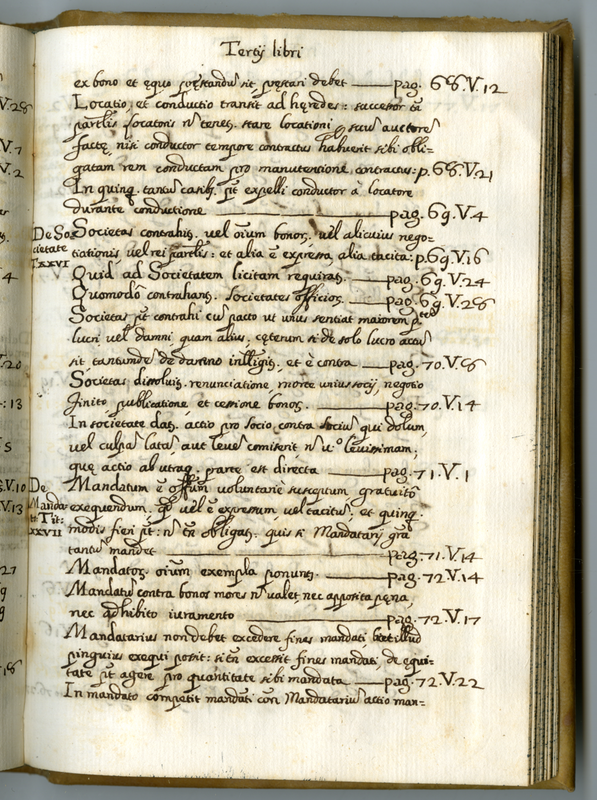 Tertij libri
ex bono et equo prestandu sit prestari debet pag. 68.V.12
Locatio, et conductio transit ad hęredes: successor tn
partlis locatoris n tenet stare locationi auctore
factę, nisi conductor tempore contractus habuerit sibi obli=
gatam rem conductam pro manutentione contractus: p. 68.V.21
In quinq. tantu casib. pt expelli conductor à locatore
durante conductione pag. 69.V.4
De So=
cietate
T. XXVI
Societas contrahit, vel oium bonor, vel alicuius nego=
tiationis, vel rei partlis: et alia ē expressa, alia tacita: p. 69.V.16
Quid ad Societatem licitam requirat. pag. 69.V.24
Quomodo contrahant. Societates officior. pag. 69.V.28
Societas pt contrahi cu pacto ut unus sentiat maiorem pte
lucri vel damni quam alius: cęterum si de solo lucro actu
sit tantunde de damno intlligit, et è contra pag. 70.V.8
Societas dissoluit. renunciatione morte unius socij, negotio
finito publicatione, et cessione bonor. pag. 70.V.14
In societate dat. actio pro socio contra sociu qui dolum,
vel culpa lata, aut leve comiserit n v.o levissimam;
quę actio ab utraq. parte est directa pag. 71.V.1
De
Manda=
t. Tit:
XXVII
Mandatum ē offium voluntariè susceptum gratuitò
exequendum. qd vel ē expressum vel tacitu, et quinq.
modis fieri pt: n tn obligat. quis si Mandatarij gra
tantu mandet pag. 71.V.14
Mandator. oium exempla ponunt. pag. 72.V.14
Mandatu contra bonos mores n valet nec apposita pęna,
nec adhibito iuramento pag. 72.V.17
Mandatarius non debet excedere fines mandati, illud
pinguius exequi possit: si tn excessit fines mandati, de equi=
tate pt agere pro quantitate sibi mandata pag. 72.V.22
In mandato competit mandati con Mandatariu actio man=